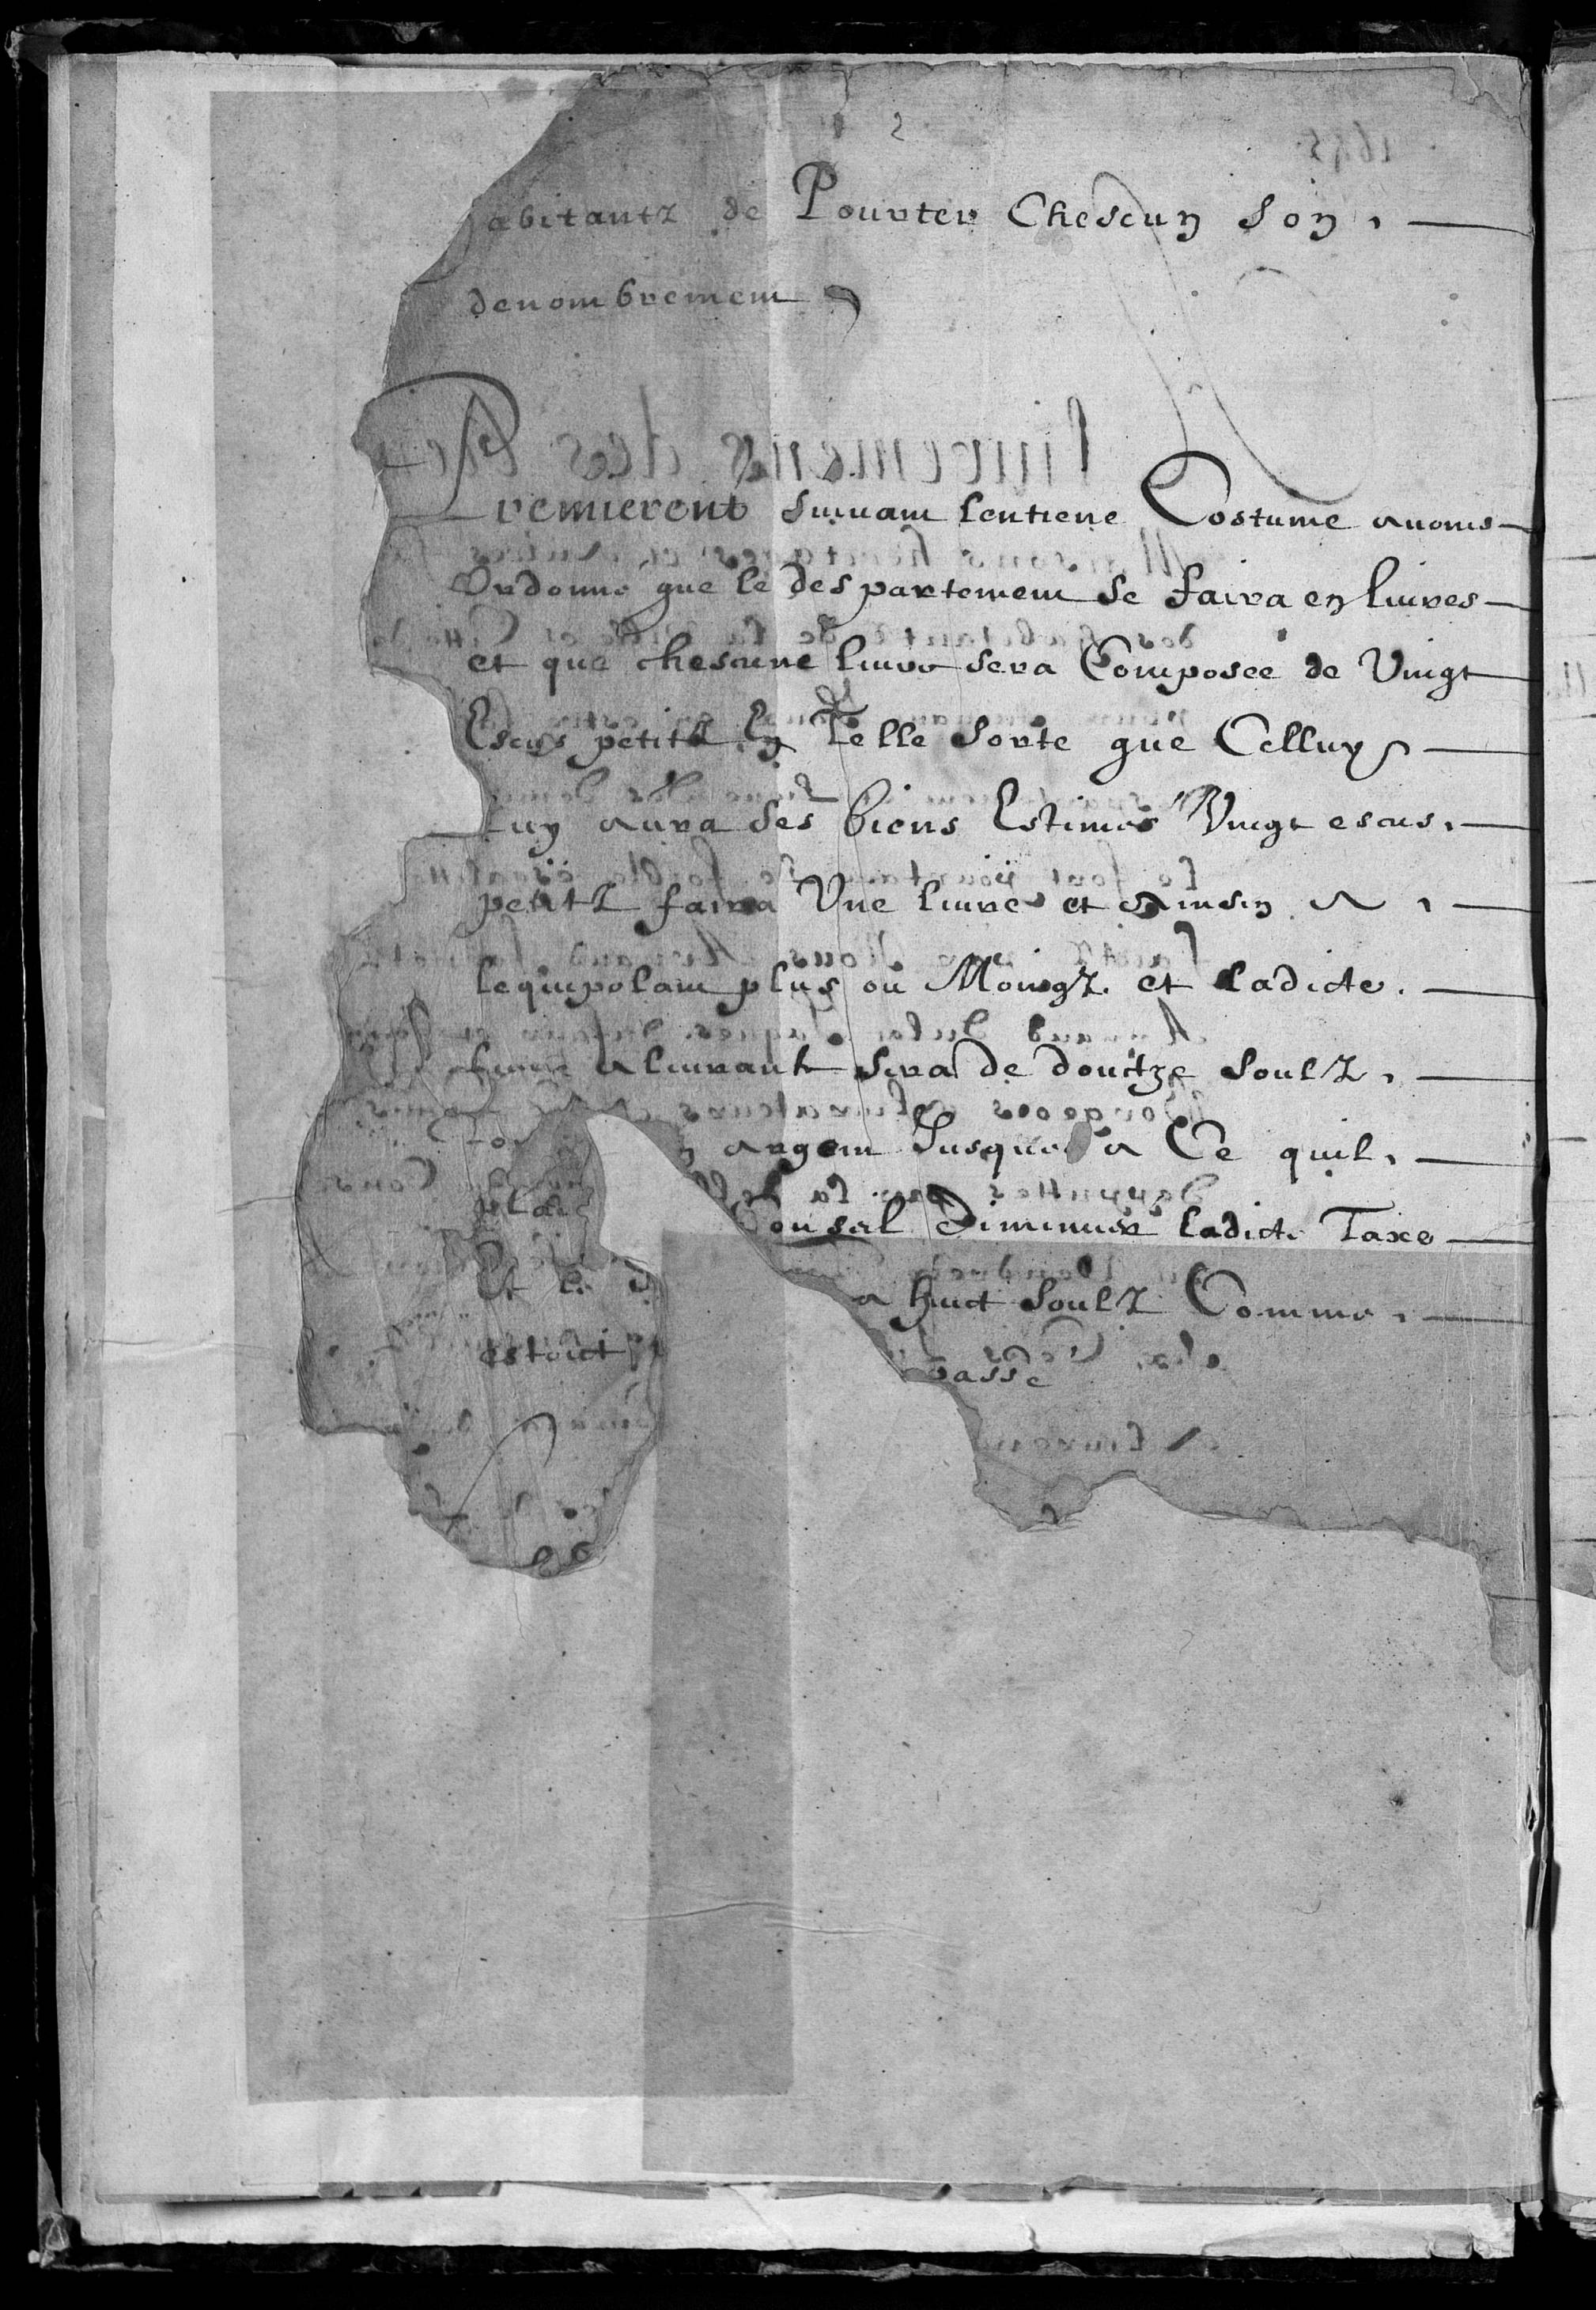 abitantz de Pourter Chescun son
denombrement
Premierent suiuant lentiene Costume auons
Ordonne que le despartement se faira en liures
et que chescune liure sera Composee de Vingt
Escus petitz En Telle sorte que Celluy
quy aura des biens Estimes Vingt escus
petitz faira Vne liure et ainsin
lequipolant plus ou Moingz et ladicte
liure aliurant sera de douctze soulz
argent Jusques a Ce quil
plai Consel Diminuer ladicte Taxe
Et la a huict soulz Comme
estoict passe